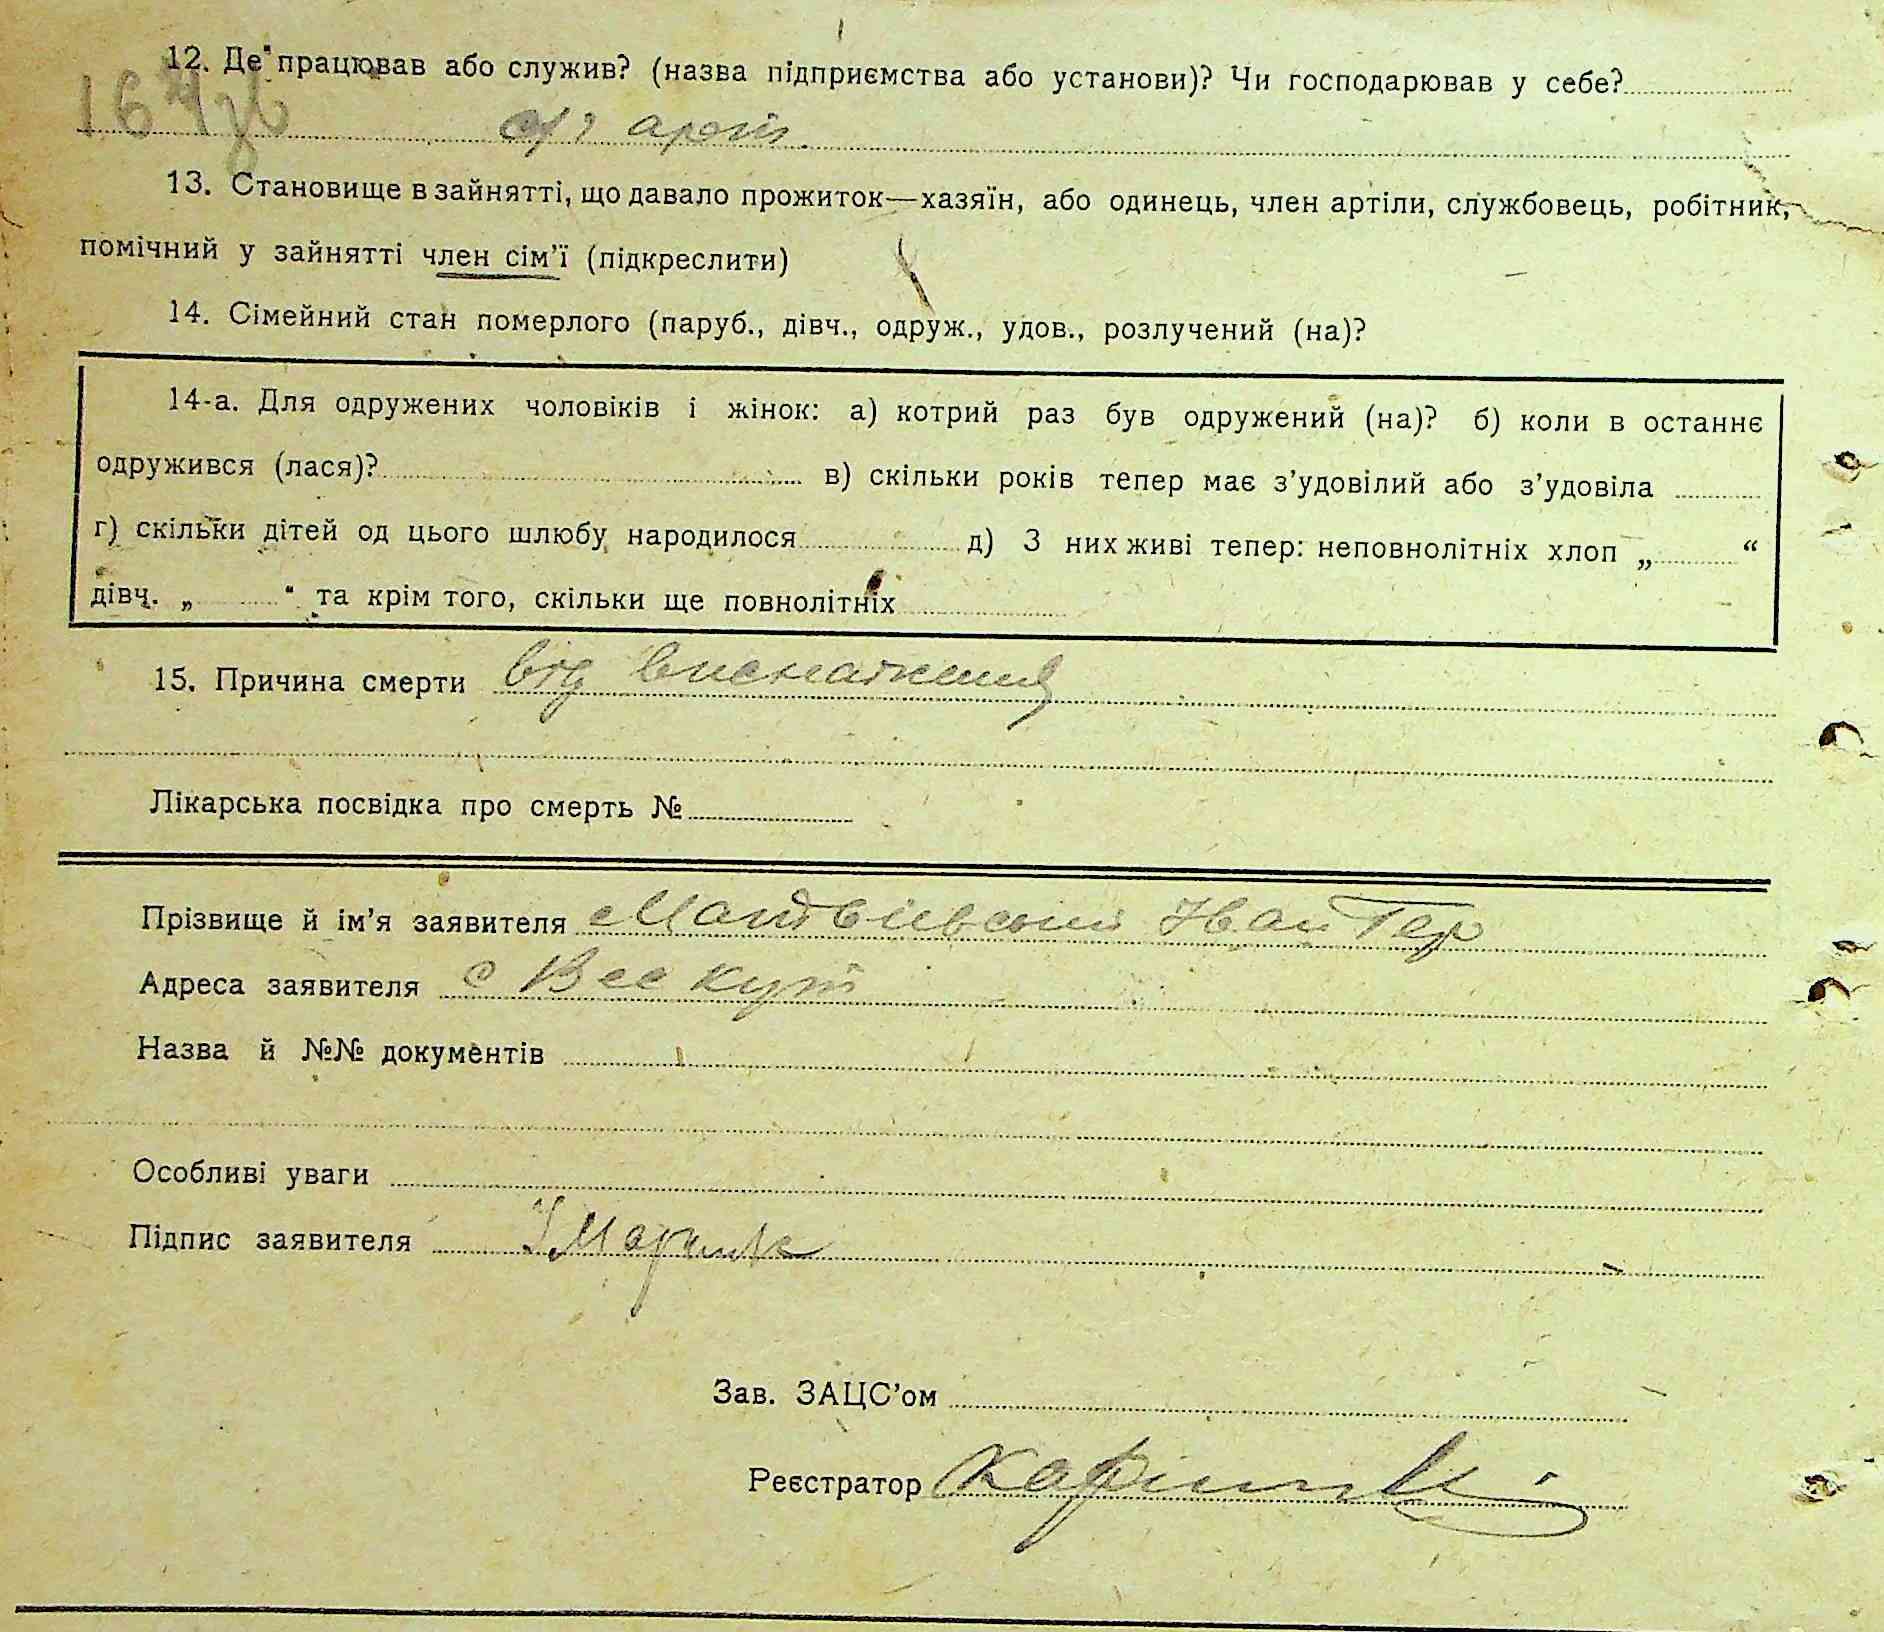 12. Де працював або служив? (назва підприємства або установи)? Чи господарював у себе?
164
13. Становище в зайнятті, що давало прожиток—хазяїн, або одинець, член артіли, службовець, робітник,
помічний у зайнятті член сім’ї (підкреслити)
14. Сімейний стан померлого (паруб., дівч., одруж., удов., розлучений (на)?
14-а. Для одружених чоловіків і жінок: а) котрий раз був одружений (на)? б) коли в останнє
одружився (лася)? в) скільки років тепер має з’удовілий або з’удовіла
г) скільки дітей од цього шлюбу народилося д) З них живі тепер: неповнолітніх хлоп „ “
дівч. „ “ та крім того, скільки ще повнолітніх
15. Причина смерти від виснаження
Лікарська посвідка про смерть №
Прізвище й ім’я заявителя Матвієвський Іван
Адреса заявителя с Вес Кут
Назва й №№ документів
Особливі уваги
Підпис заявителя
Зав. ЗАЦС’ом
Реєстратор